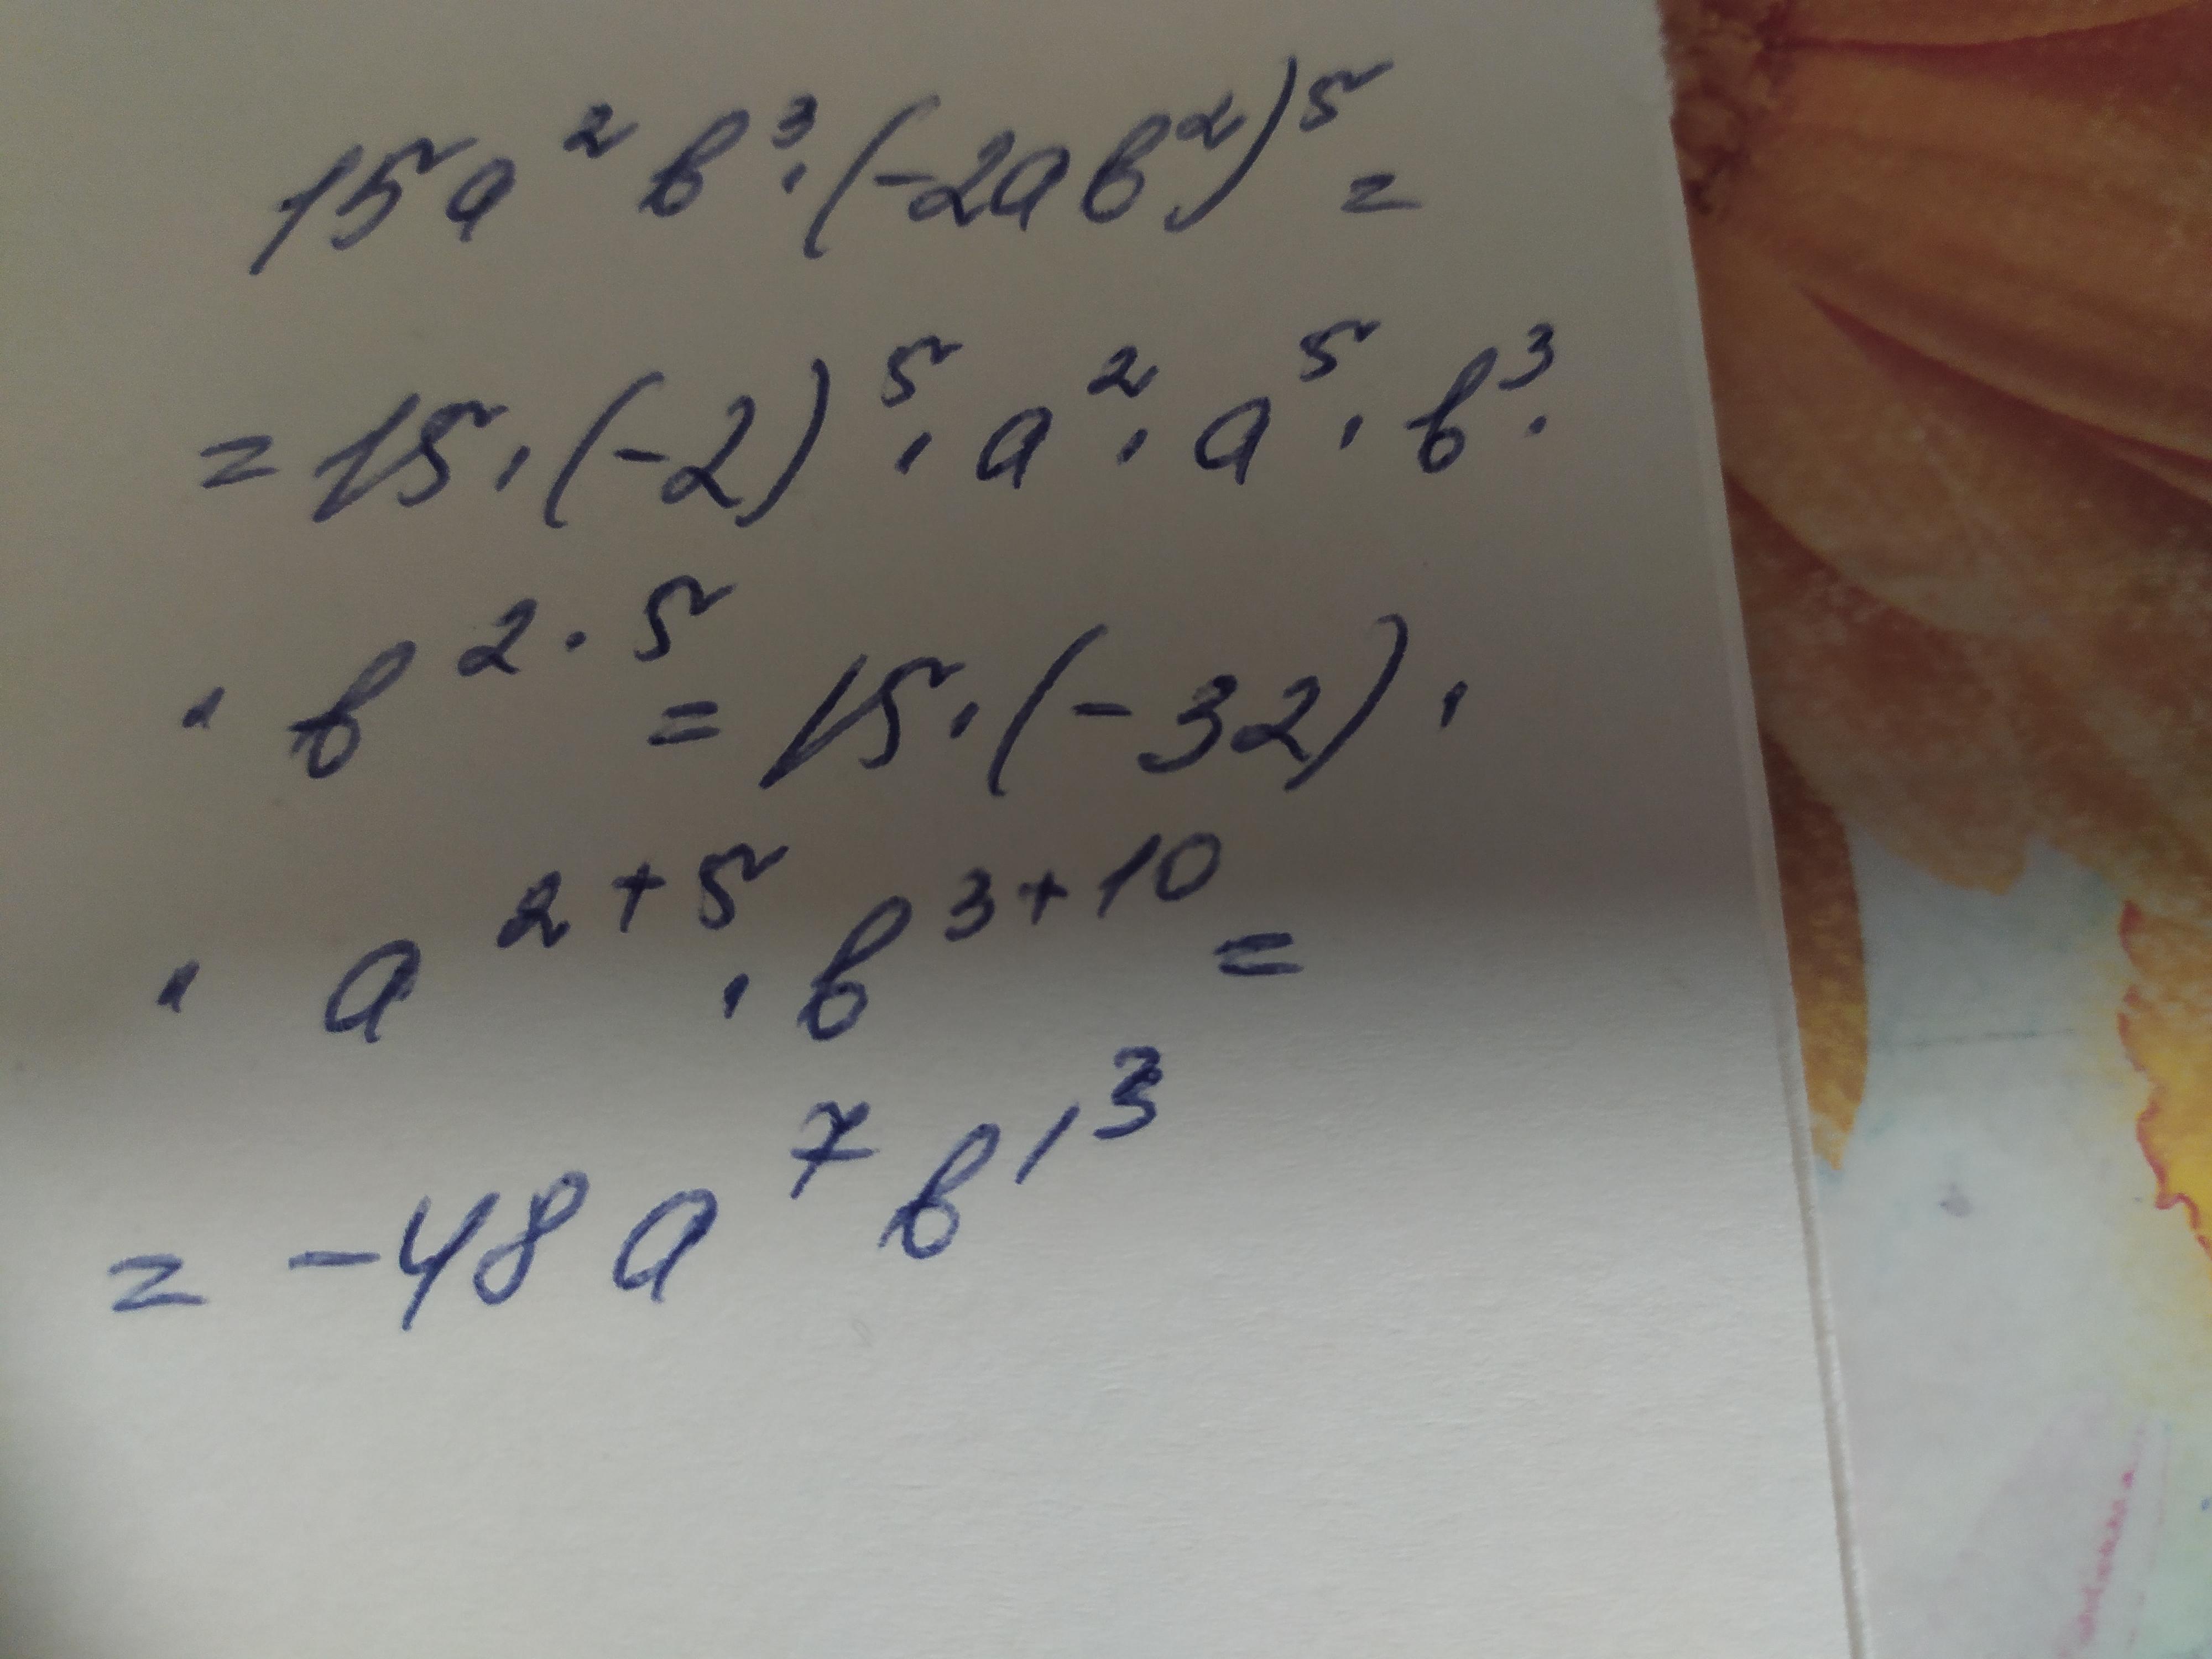 15a²b³·(-2ab²)⁵=
=15·(-2)⁵·a²·a⁵·b³·
·b²·⁵=15·(-32)·
·a²⁺⁵·b³⁺¹⁰=
=-48a⁷b¹³